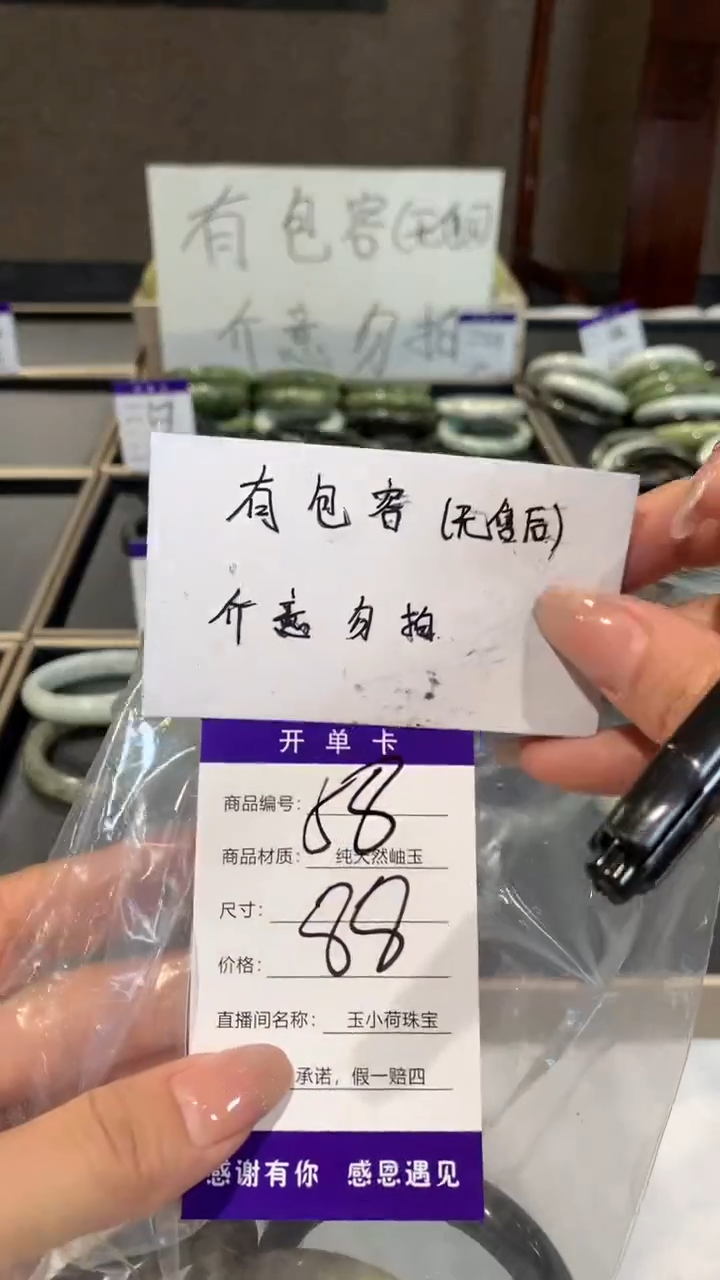 有包容(无售后)
介意勿拍
有包容(无售后)
介意勿拍
开单卡
商品编号: 58
商品材质: 纯天然岫玉
尺寸:
88
价格:
直播间名称: 玉小荷珠宝
承诺，假一赔四
感谢有你 感恩遇见